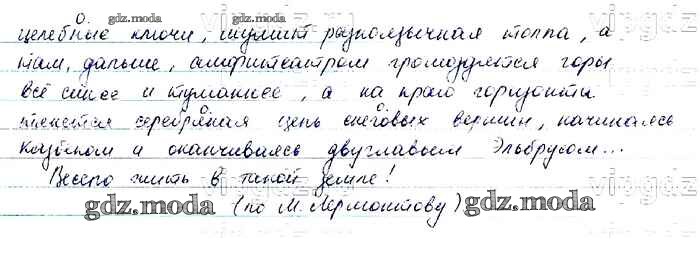 О.
целебные ключи, шумит разноязычная толпа, а
там, дальше, амфитеатром громоздятся горы
всё синее и туманнее, а на краю горизонта
тянется серебряная цепь снеговых вершин, начинаясь
Казбеком и оканчиваясь двуглавым Эльбрусом...
Весело жить в такой земле!
(по М. Лермонтову)
gdz.moda
gdz.moda
gdz.moda
gdz.moda
vipgdz
vipgdz